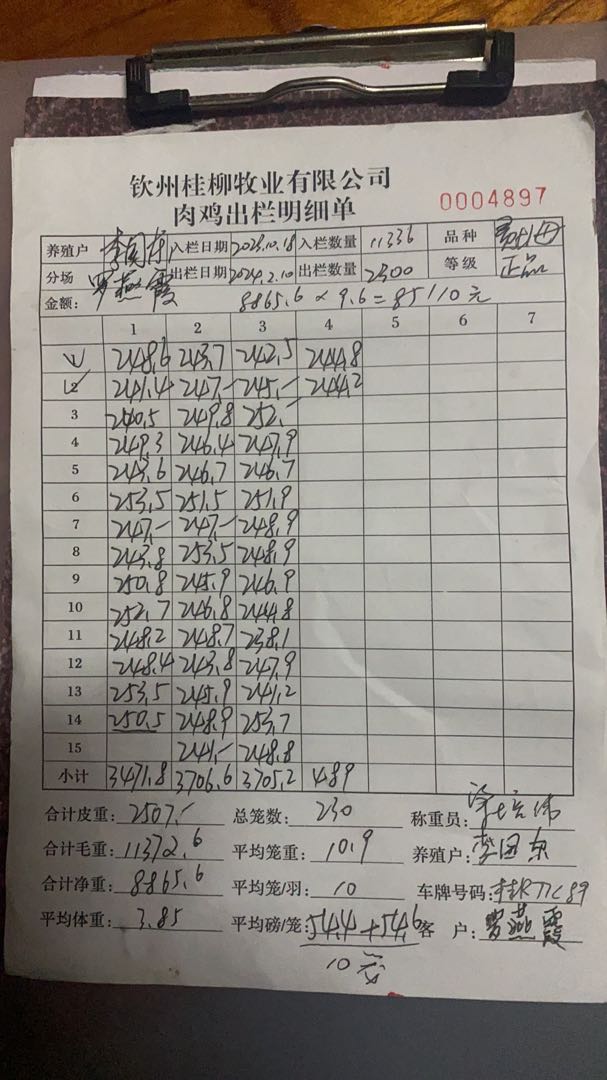 钦州桂柳牧业有限公司
肉鸡出栏明细单
0004897
养殖户 李团东 入栏日期 2023.10.18 入栏数量 11336 品种
分场 罗燕霞 出栏日期 2024.2.10 出栏数量 2300 等级 正品
金额: 8865.6 × 9.6 = 85110元
1 2 3 4 5 6 7
1 248.6 243.7 242.5 244.8
2 241.4 247.- 245.- 244.2
3 240.5 249.8 252.-
4 249.3 246.4 247.9
5 243.6 246.7 246.7
6 253.5 251.5 251.9
7 247.- 247.- 248.9
8 243.8 253.5 248.9
9 250.8 245.9 246.9
10 252.7 246.8 244.8
11 248.2 248.7 238.1
12 248.4 243.8 247.9
13 253.5 245.9 241.2
14 250.5 248.9 253.7
15 241.- 248.8
小计 3471.8 3706.6 3705.2 489
合计皮重: 2507.- 总笼数: 230 称重员:
合计毛重: 11372.6 平均笼重: 10.9 养殖户: 李团东
合计净重: 8865.6 平均笼/羽: 10 车牌号码: 桂R71C89
平均体重: 3.85 平均磅/笼: 54.4+54.6 客 户: 罗燕霞
10元